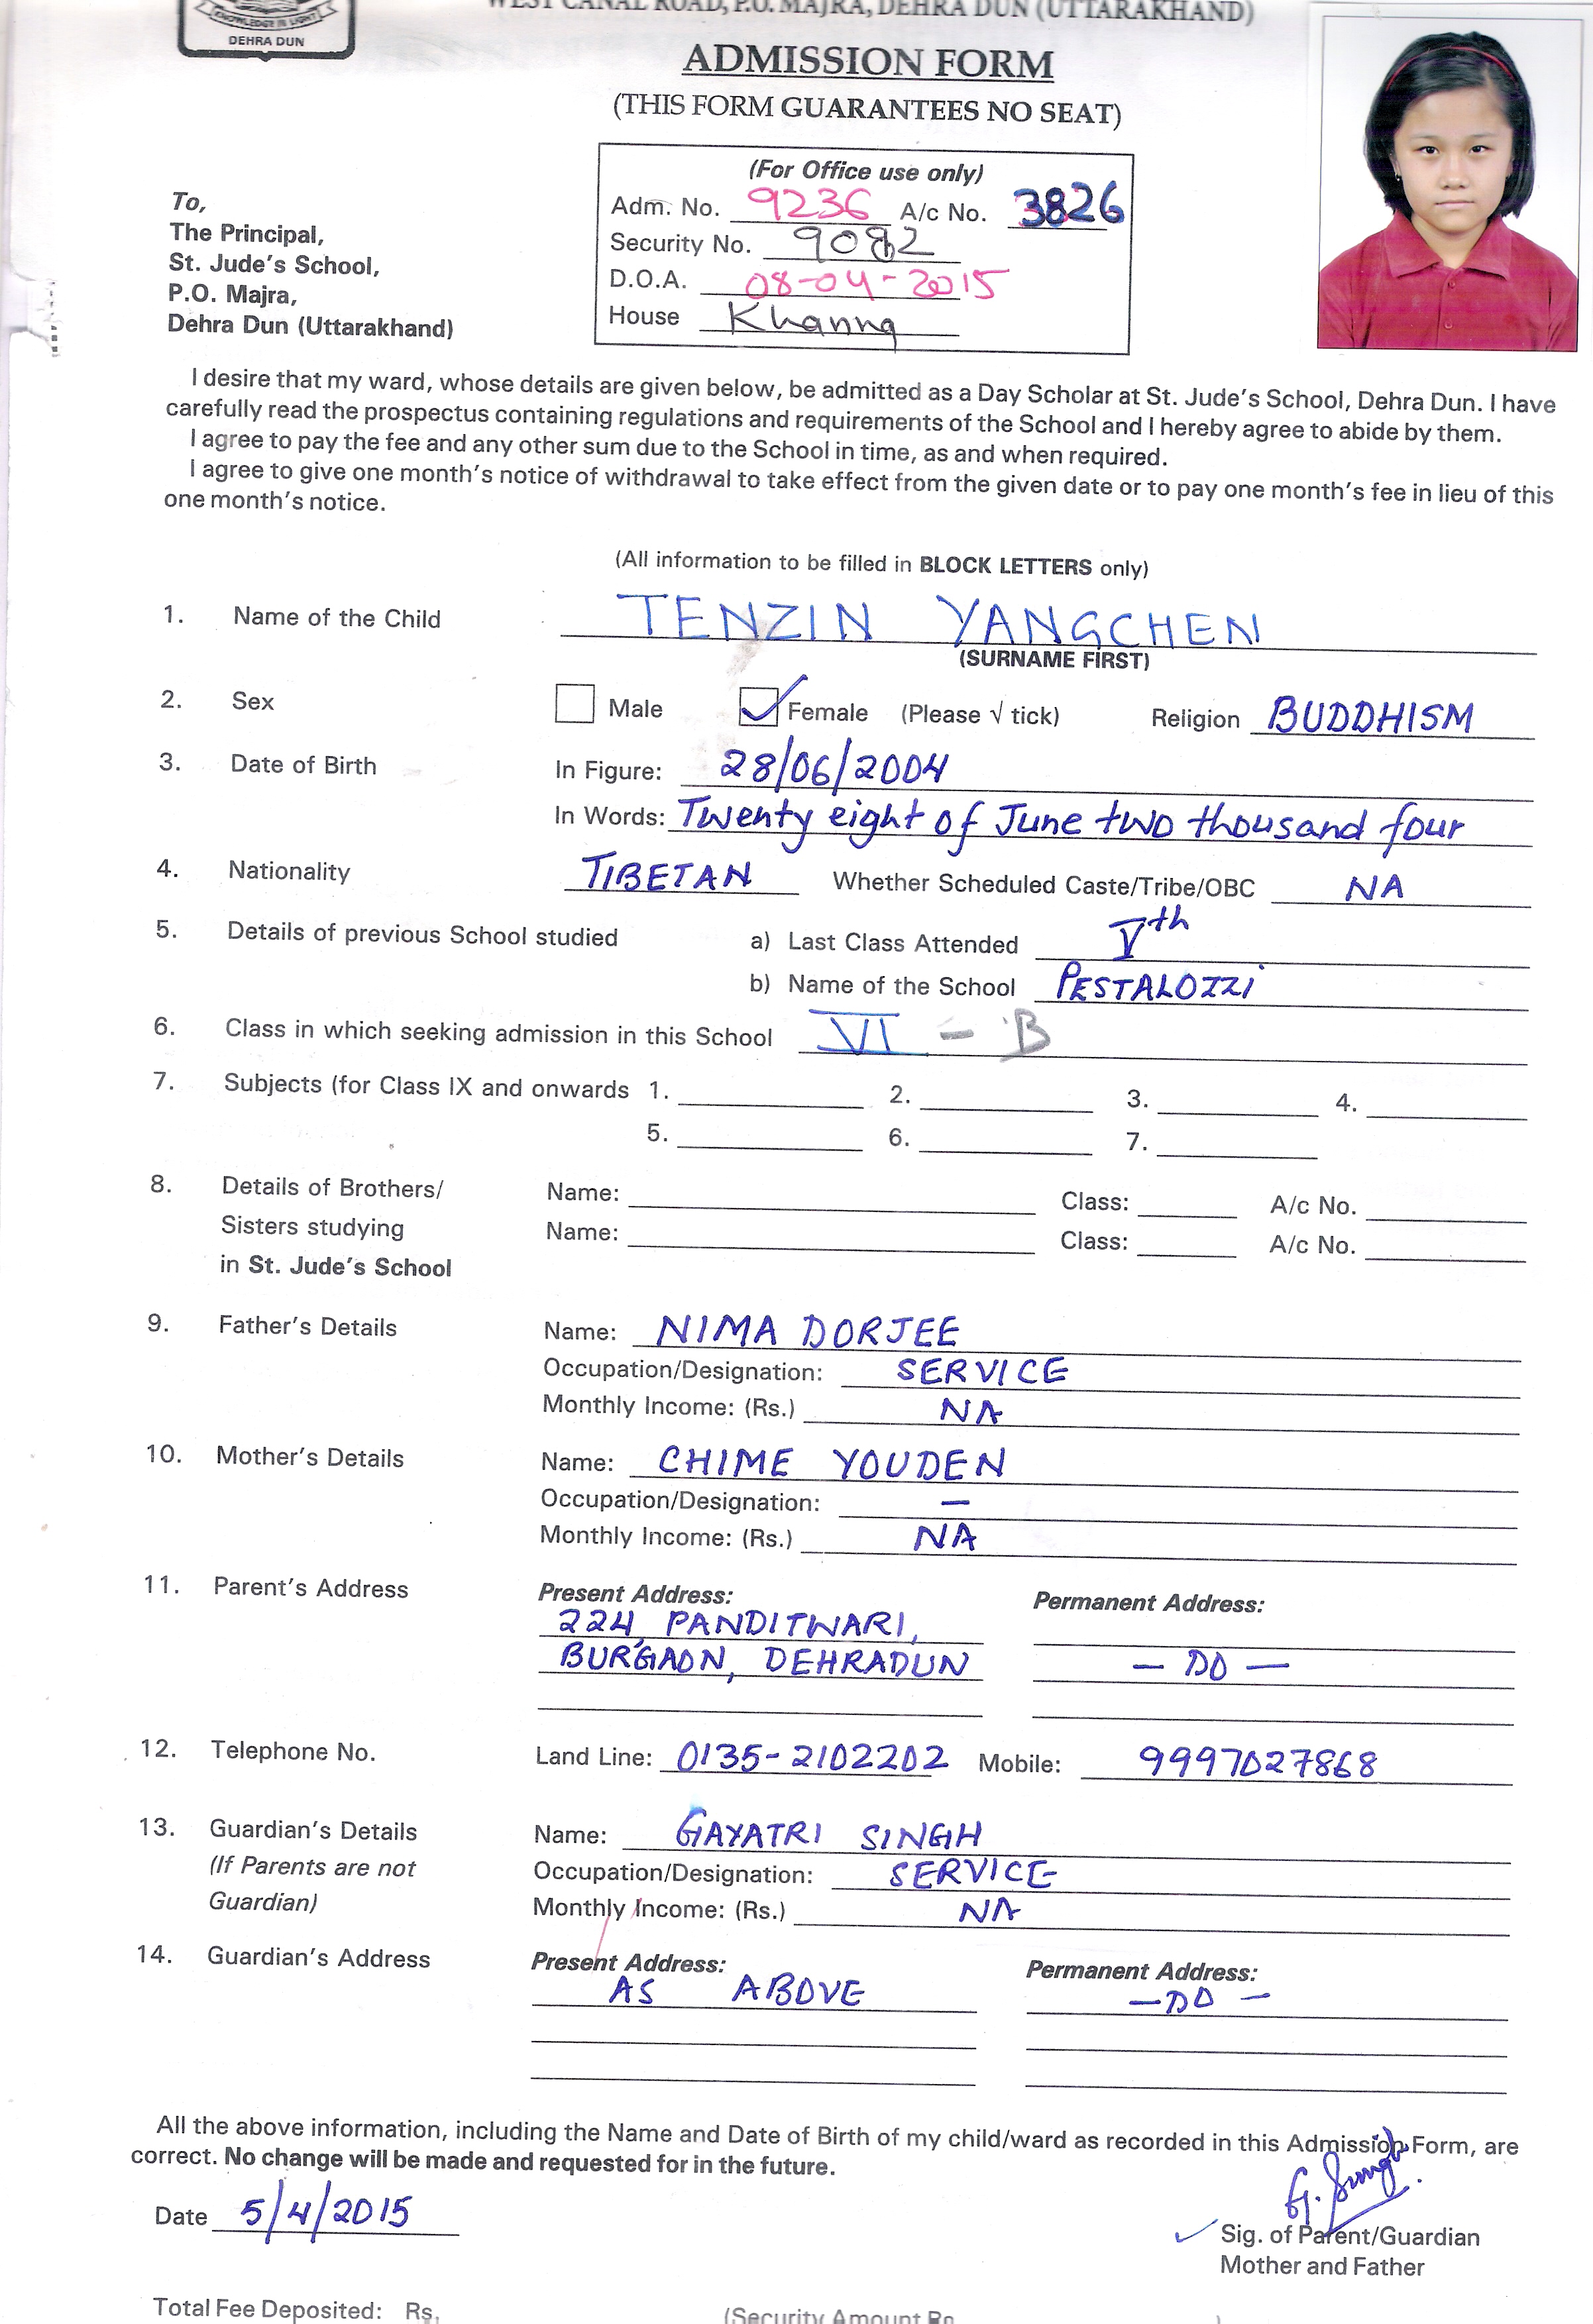 KNOWLEDGE IS LIGHT
DEHRA DUN
WEST CANAL ROAD, P.O. MAJRA, DEHRA DUN (UTTARAKHAND)
ADMISSION FORM
(THIS FORM GUARANTEES NO SEAT)
(For Office use only)
Adm. No. 9236 A/c No. 3826
Security No. 9082
D.O.A. 08-04-2015
House Khanna
To,
The Principal,
St. Jude's School,
P.O. Majra,
Dehra Dun (Uttarakhand)
I desire that my ward, whose details are given below, be admitted as a Day Scholar at St. Jude's School, Dehra Dun. I have
carefully read the prospectus containing regulations and requirements of the School and I hereby agree to abide by them.
I agree to pay the fee and any other sum due to the School in time, as and when required.
I agree to give one month's notice of withdrawal to take effect from the given date or to pay one month's fee in lieu of this
one month's notice.
(All information to be filled in BLOCK LETTERS only)
1. Name of the Child TENZIN YANGCHEN
(SURNAME FIRST)
2. Sex Male Female (Please √ tick) Religion BUDDHISM
3. Date of Birth In Figure: 28/06/2004
In Words: Twenty eight of June two thousand four
4. Nationality TIBETAN Whether Scheduled Caste/Tribe/OBC NA
5. Details of previous School studied a) Last Class Attended Vth
b) Name of the School PESTALOZZI
6. Class in which seeking admission in this School VI - B
7. Subjects (for Class IX and onwards 1. 2. 3. 4.
5. 6. 7.
8. Details of Brothers/ Name: Class: A/c No.
Sisters studying Name: Class: A/c No.
in St. Jude's School
9. Father's Details Name: NIMA DORJEE
Occupation/Designation: SERVICE
Monthly Income: (Rs.) NA
10. Mother's Details Name: CHIME YOUDEN
Occupation/Designation: —
Monthly Income: (Rs.) NA
11. Parent's Address Present Address: Permanent Address:
224, PANDITWARI,
BURGAON, DEHRADUN — DO —
12. Telephone No. Land Line: 0135-2102202 Mobile: 9997027868
13. Guardian's Details Name: GAYATRI SINGH
(If Parents are not Occupation/Designation: SERVICE
Guardian) Monthly Income: (Rs.) NA
14. Guardian's Address Present Address: Permanent Address:
AS ABOVE —DO—
All the above information, including the Name and Date of Birth of my child/ward as recorded in this Admission Form, are
correct. No change will be made and requested for in the future.
G. Singh
Date 5/4/2015
Sig. of Parent/Guardian
Mother and Father
Total Fee Deposited: Rs. (Security Amount Rs. )